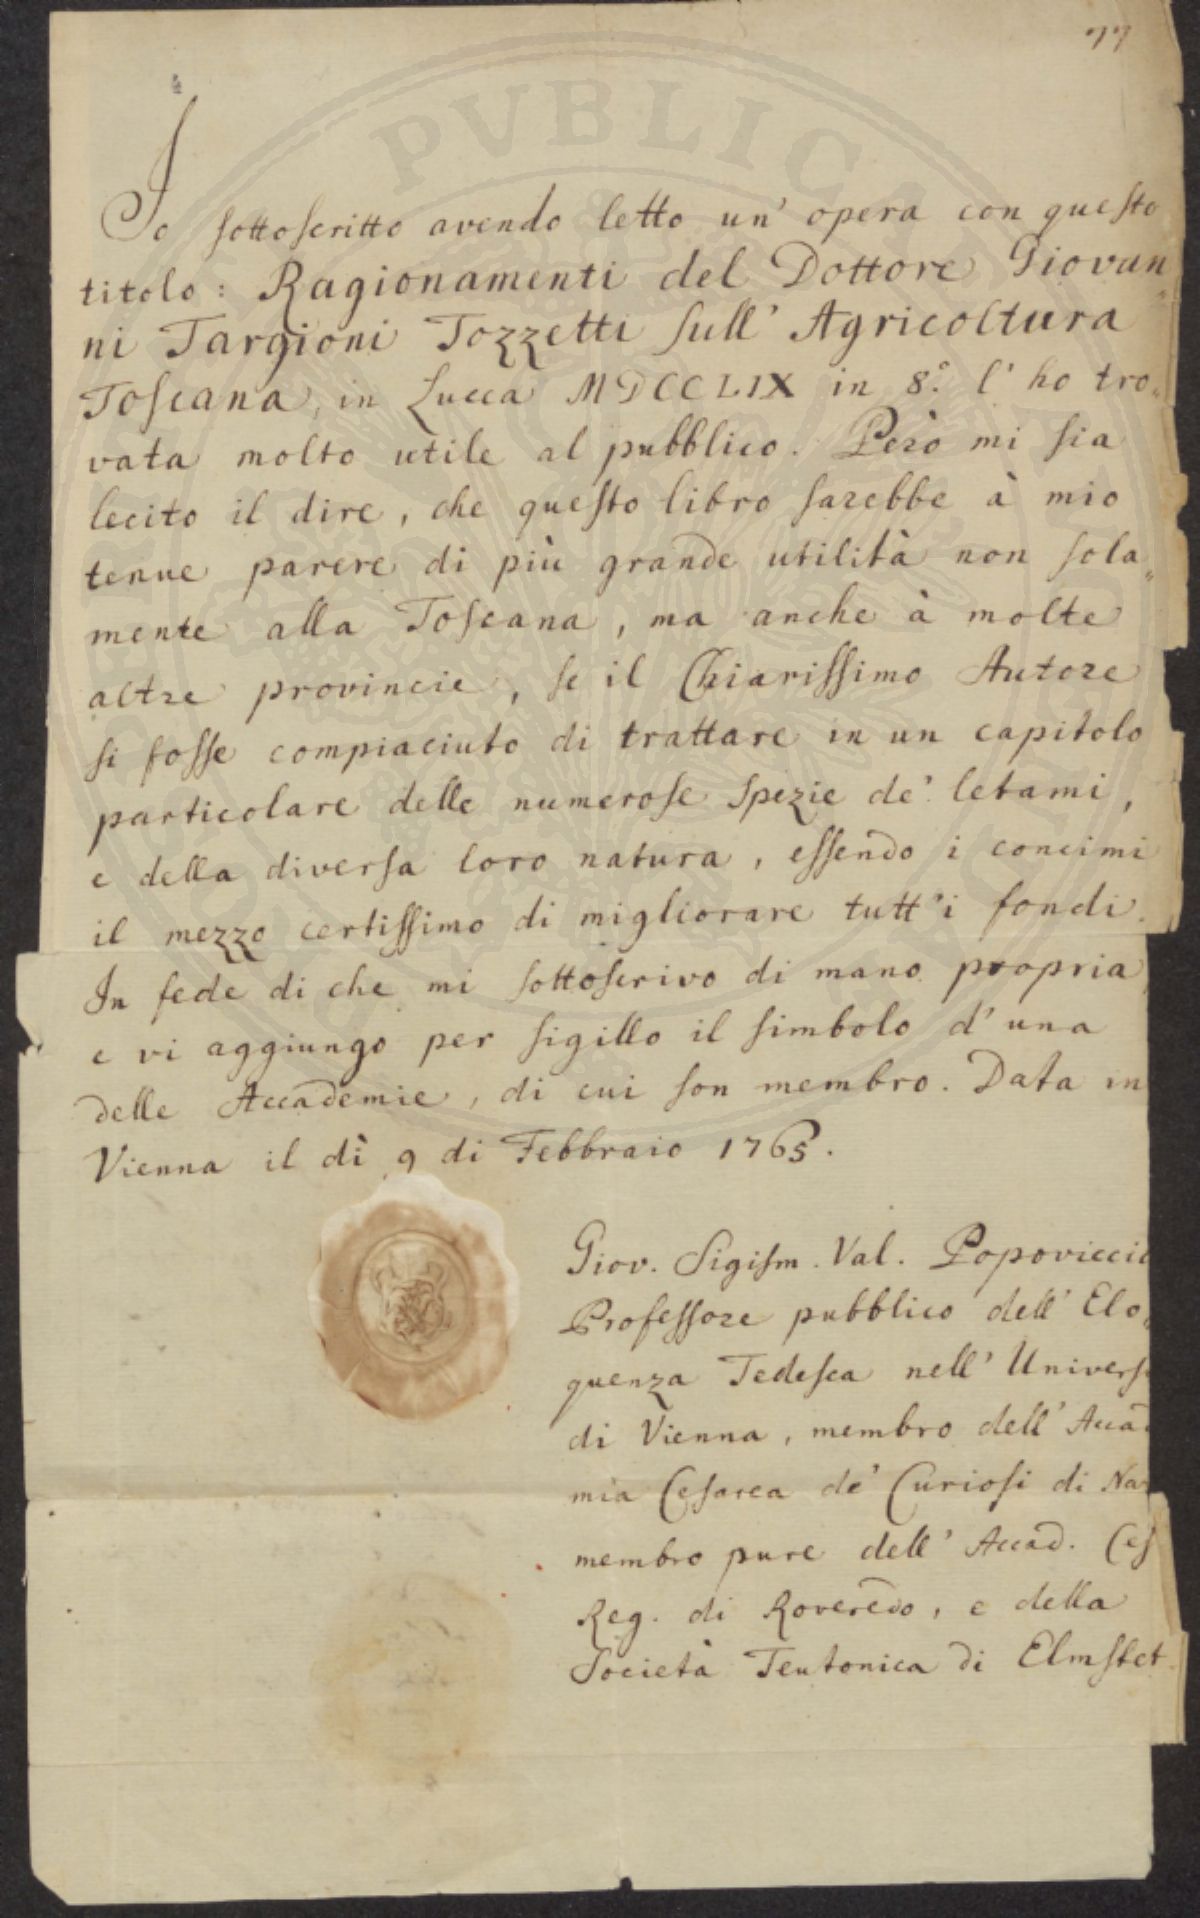 77
Io sottoscritto avendo letto un' opera con questo
titolo: Ragionamenti del Dottore Giovan„
ni Targioni Tozzetti sull' Agricoltura
Toscana, in Lucca MDCCLIX in 8.° l' ho tro„
vata molto utile al pubblico. Però mi sia
lecito il dire, che questo libro sarebbe à mio
tenue parere di più grande utilità non sola„
mente alla Toscana, ma anche à molte
altre provincie, se il Chiarissimo Autore
si fosse compiaciuto di trattare in un capitolo
particolare delle numerose spezie de' letami,
e della diversa loro natura, essendo i concimi
il mezzo certissimo di migliorare tutt'i fondi.
In fede di che mi sottoscrivo di mano propria,
e vi aggiungo per sigillo il simbolo d' una
delle Accademie, di cui son membro. Data in
Vienna il dì 9 di Febbraio 1765.
Giov. Sigism. Val. Popoviccio
Professore pubblico dell' Elo„
quenza Tedesca nell' Univers
di Vienna, membro dell' Accad
mia Cesarea de' Curiosi di Na
membro pure dell' Accad. Ces
Reg. di Roveredo, e della
Società Teutonica di Elmstet
PVBLICA